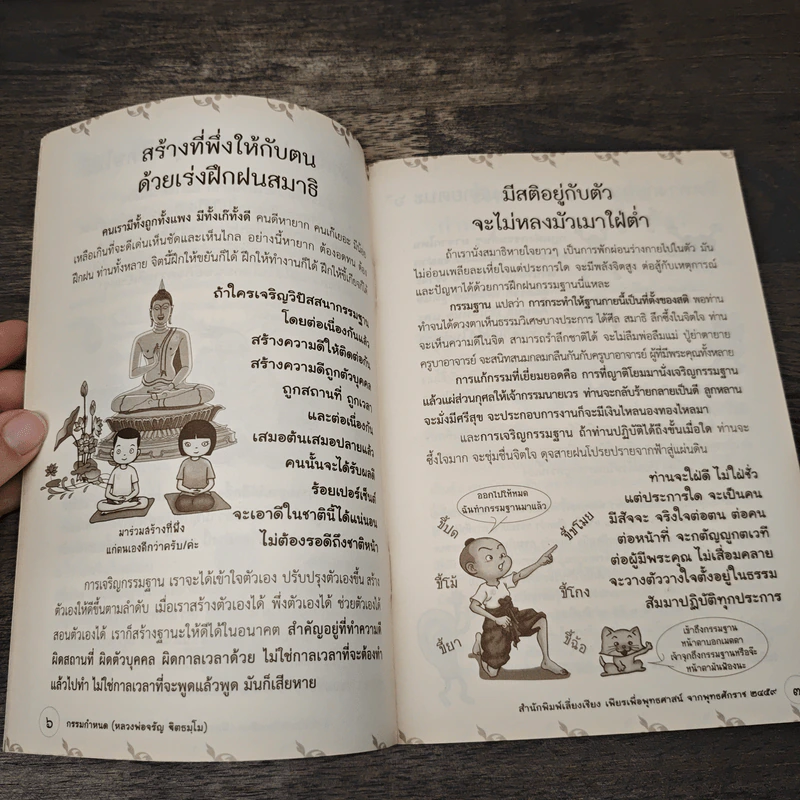 สร้างที่พึ่งให้กับตน
ด้วยเร่งฝึกฝนสมาธิ
คนเรามีทั้งถูกทั้งแพง มีทั้งเก๊ทั้งดี คนดีหายาก คนเก๊เยอะ มี
เหลือเกินที่จะดีเด่นเห็นชัดและเห็นไกล อย่างนี้หายาก ต้องอดทน ต้อง
ฝึกฝน ท่านทั้งหลาย จิตนี้ฝึกให้ขยันก็ได้ ฝึกให้ทำงานก็ได้ ฝึกให้ขี้เกียจก็ได้
ถ้าใครเจริญวิปัสสนากรรมฐาน
โดยต่อเนื่องกันแล้ว
สร้างความดีให้ติดต่อกัน
สร้างความดีถูกตัวบุคคล
ถูกสถานที่ ถูกเวลา
และต่อเนื่องกัน
เสมอต้นเสมอปลายแล้ว
คนนั้นจะได้รับผลดี
ร้อยเปอร์เซ็นต์
จะเอาดีในชาตินี้ได้แน่นอน
ไม่ต้องรอดีถึงชาติหน้า
มาร่วมสร้างที่พึ่ง
แก่ตนเองดีกว่าครับ/ค่ะ
การเจริญกรรมฐาน เราจะได้เข้าใจตัวเอง ปรับปรุงตัวเองขึ้น สร้าง
ตัวเองให้ดีขึ้นตามลำดับ เมื่อเราสร้างตัวเองได้ พึ่งตัวเองได้ ช่วยตัวเองได้
สอนตัวเองได้ เราก็สร้างฐานะให้ดีได้ในอนาคต สำคัญอยู่ที่ทำความดี
ผิดสถานที่ ผิดตัวบุคคล ผิดกาลเวลาด้วย ไม่ใช่กาลเวลาที่จะต้องทำ
แล้วไปทำ ไม่ใช่กาลเวลาที่จะพูดแล้วพูด มันก็เสียหาย
๖ กรรมกำหนด (หลวงพ่อจรัญ ฐิตธมฺโม)
มีสติอยู่กับตัว
จะไม่หลงมัวเมาใฝ่ต่ำ
ถ้าเรานั่งสมาธิหายใจยาวๆ เป็นการพักผ่อนร่างกายไปในตัว มัน
ไม่อ่อนเพลียละเหี่ยใจแต่ประการใด จะมีพลังจิตสูง ต่อสู้กับเหตุการณ์
และปัญหาได้ด้วยการฝึกฝนกรรมฐานนี่แหละ
กรรมฐาน แปลว่า การกระทำให้ฐานกายนี้เป็นที่ตั้งของสติ พอท่าน
ทำจนได้ดวงตาเห็นธรรมวิเศษบางประการ ได้ศีล สมาธิ ลึกซึ้งในจิตใจ ท่าน
จะเห็นความดีในจิต สามารถรำลึกชาติได้ จะไม่ลืมพ่อลืมแม่ ปู่ย่าตายาย
ครูบาอาจารย์ จะสนิทสนมกลมกลืนกันกับครูบาอาจารย์ ผู้ที่มีพระคุณทั้งหลาย
การแก้กรรมที่เยี่ยมยอดคือ การที่ญาติโยมมานั่งเจริญกรรมฐาน
แล้วแผ่ส่วนกุศลให้เจ้ากรรมนายเวร ท่านจะกลับร้ายกลายเป็นดี ลูกหลาน
จะมั่งมีศรีสุข จะประกอบการงานก็จะมีเงินไหลนองทองไหลมา
และการเจริญกรรมฐาน ถ้าท่านปฏิบัติได้ถึงขั้นเมื่อใด ท่านจะ
ซึ้งใจมาก จะชุ่มชื่นจิตใจ ดุจสายฝนโปรยปรายจากฟ้าสู่แผ่นดิน
ท่านจะใฝ่ดี ไม่ใฝ่ชั่ว
แต่ประการใด จะเป็นคน
มีสัจจะ จริงใจต่อตน ต่อคน
ต่อหน้าที่ จะกตัญญูกตเวที
ต่อผู้มีพระคุณ ไม่เสื่อมคลาย
จะวางตัววางใจตั้งอยู่ในธรรม
สัมมาปฏิบัติทุกประการ
ออกไปให้หมด
ฉันทำกรรมฐานมาแล้ว
ขี้ปด
ขี้ขโมย
ขี้โม้
ขี้โกง
ขี้ยา
ขี้ฉ้อ
เข้าถึงกรรมฐาน
หน้าตาบอกเมตตา
เจ้าจุกถึงกรรมฐานหรือจ๊ะ
หน้าตามันฟ้องนะ
สำนักพิมพ์เลี่ยงเชียง เพียรเพื่อพุทธศาสน์ จากพุทธศักราช ๒๔๕๙